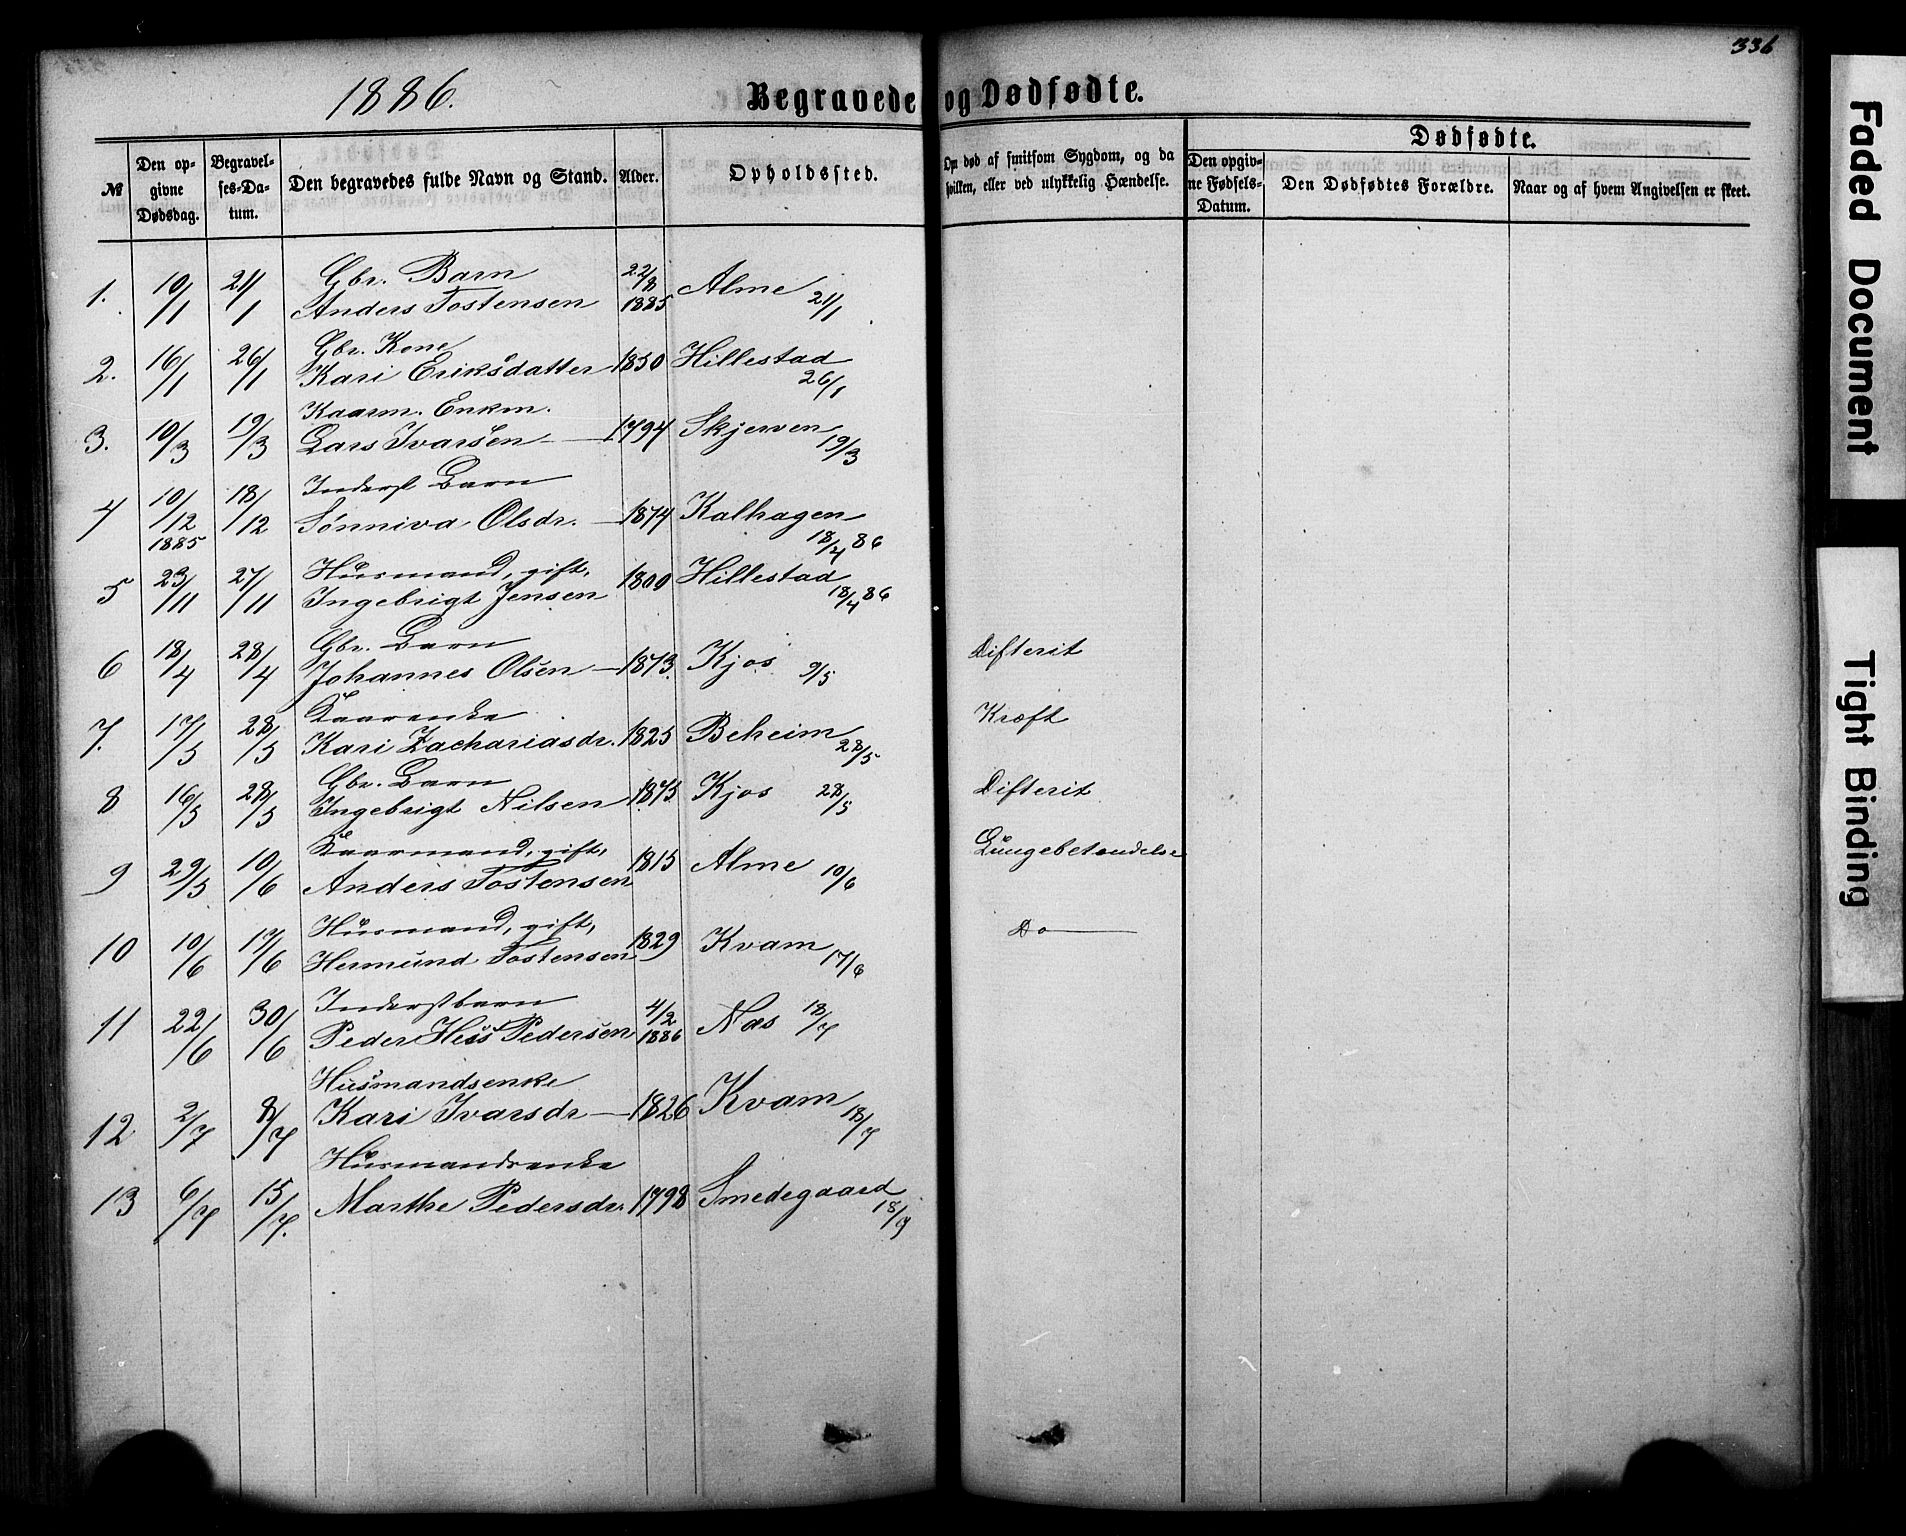 336
1886.
Begravede og Dødfødte.
№
Den opgivne Dødsdag.
Begravelses-Datum.
Den begravedes fulde Navn og Stand.
Alder.
Opholdssted.
Om død af smitsom Sygdom, og da hvilken, eller ved ulykkelig Hændelse.
Dødfødte.
Den opgivne Fødsels-Datum.
Den Dødfødtes Forældre.
Naar og af hvem Angivelsen er skeet.
Gbr. Barn
1. 10/1 21/1 Anders Tostensen 22/8 1885 Alme 21/1
Gbr. Kone
2. 16/1 26/1 Kari Eriksdatter 1850 Hillestad 26/1
Kaarm. Enkm.
3. 10/3 19/3 Lars Ivarsen — 1794 Skjerven 19/3
Inderst Barn
4 10/12 1885 18/12 Sønniva Olsdr. — 1874 Kalhagen 18/4 86
Husmand, gift,
5 23/11 27/11 Ingebrigt Jensen 1800 Hillestad 18/4 86
Gbr. Barn
6 18/4 28/4 Johannes Olsen — 1873. Kjos 9/5 Difterit
Kaarenke
7. 17/5 28/5 Kari Zachariasdr. 1825 Beheim 28/5 Kræft
Gbr. Barn
8 16/5 28/5 Ingebrigt Nilsen 1875 Kjos 28/5 Difterit
Kaarmand, gift,
9 29/5 10/6 Anders Tostensen 1815 Alme 10/6 Lungebetændelse
Husmand, gift,
10 10/6 17/6 Hermund Tostensen 1829 Kvam 17/6 Do —
Inderstbarn
11 22/6 30/6 Peder Hess Pedersen 4/2 1886 Næs 18/7
Husmandsenke
12 2/7 8/7 Kari Ivarsdr — 1826 Kvam 18/7
Husmandsenke
13 6/7 15/7. Marthe Pedersdr. 1798 Smedegaard 18/9
Faded Document
Tight Binding